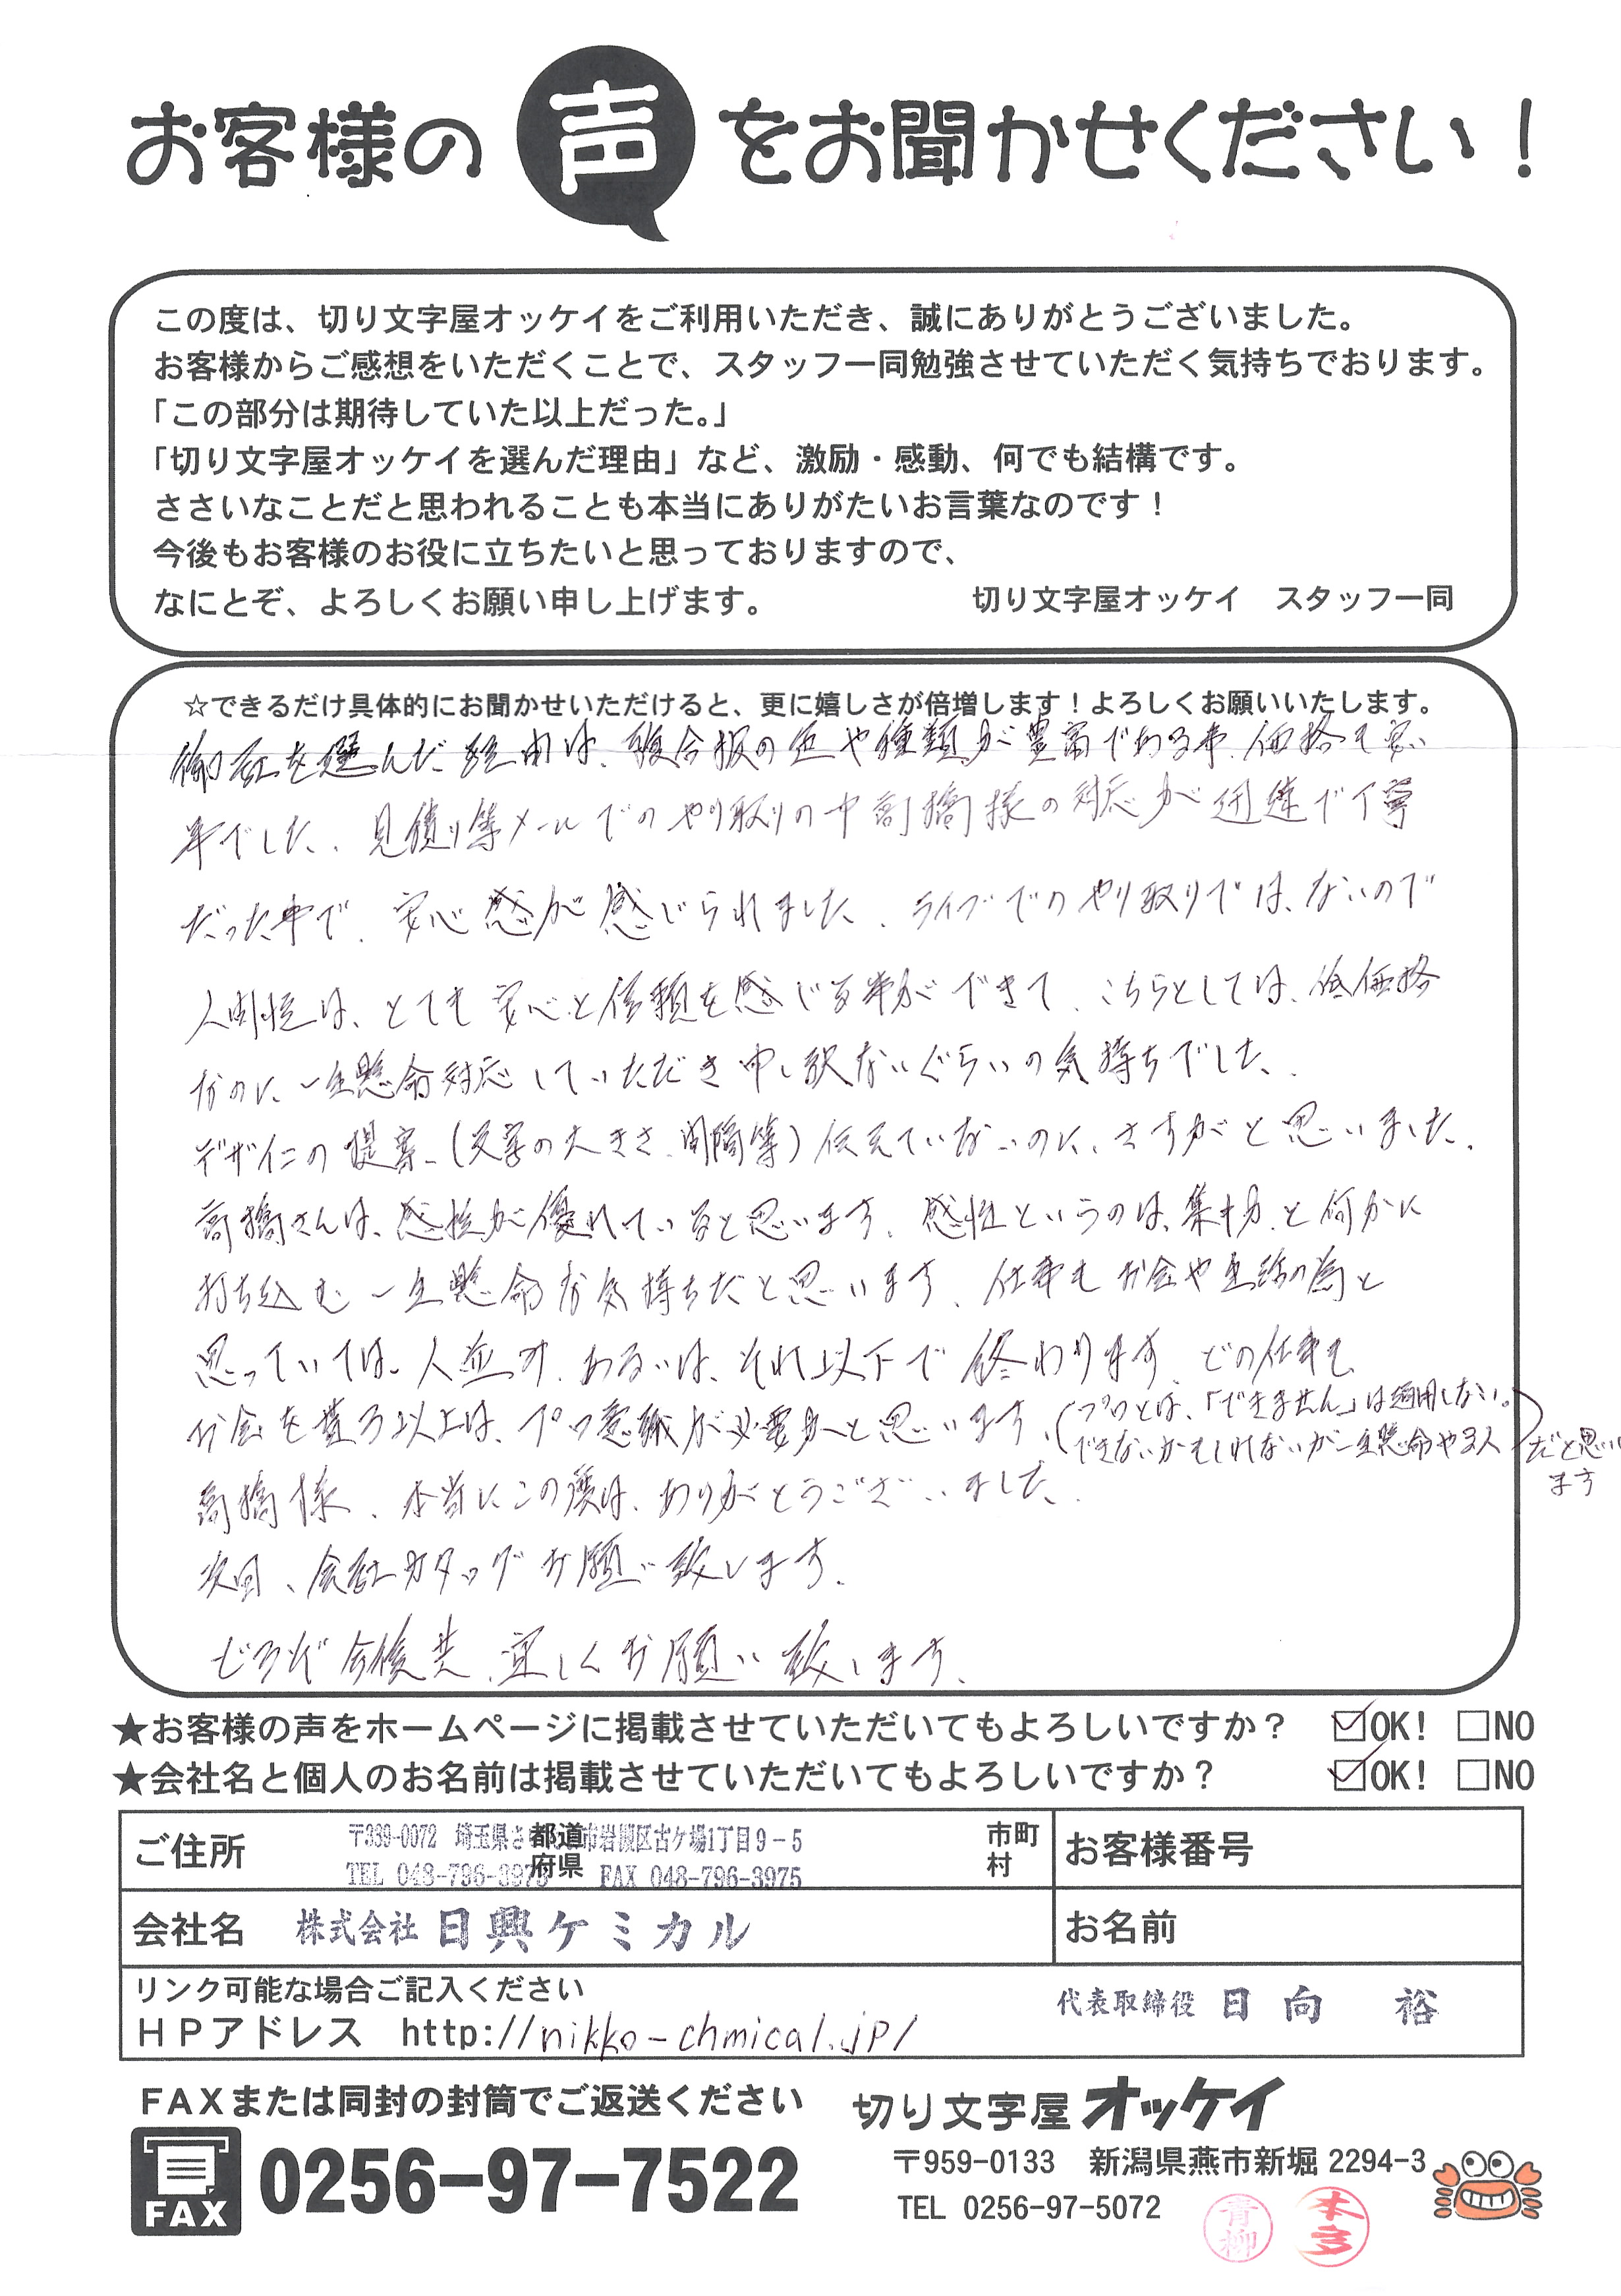 お客様の声をお聞かせください！
この度は、切り文字屋オッケイをご利用いただき、誠にありがとうございました。
お客様からご感想をいただくことで、スタッフ一同勉強させていただく気持ちでおります。
「この部分は期待していた以上だった。」
「切り文字屋オッケイを選んだ理由」など、激励・感動、何でも結構です。
ささいなことだと思われることも本当にありがたいお言葉なのです！
今後もお客様のお役に立ちたいと思っておりますので、
なにとぞ、よろしくお願い申し上げます。　切り文字屋オッケイ　スタッフ一同
☆できるだけ具体的にお聞かせいただけると、更に嬉しさが倍増します！よろしくお願いいたします。
御社を選んだ経由は、複合板の色や種類が豊富である事、価格も安い
事でした。見積り等メールでのやり取りの中高橋様の対応が迅速で丁寧
だった事で、安心感が感じられました。ライブでのやり取りでは、ないので
人間性は、とても安心と信頼を感じる事ができて、こちらとしては、低価格
なのに一生懸命対応していただき申し訳ないぐらいの気持ちでした。
デザインの提案、(文字の大きさ、間隔等)伝えていないのに、さすがと思いました。
高橋さんは、感性が優れていると思います。感性というのは、集中力、と何かに
打ち込む一生懸命な気持ちだと思います。仕事もお金や生活の為と
思っていては、人並み、あるいは、それ以下で終わります。どの仕事も
お金を貰う以上は、プロ意識が必要かと思います。(プロとは、「できません」は通用しない。
できないかもしれないが一生懸命やる人)だと思い
ます
高橋様、本当にこの度は、ありがとうございました。
次回、会社カタログお願い致します。
どうぞ今後共、宜しくお願い致します。
★お客様の声をホームページに掲載させていただいてもよろしいですか？　☑OK！　□NO
★会社名と個人のお名前は掲載させていただいてもよろしいですか？　☑OK！　□NO
ご住所　〒339-0072　埼玉県さ 都道府県 市岩槻区古ケ場1丁目9-5　市町村　お客様番号
TEL 048-796-3973　FAX 048-796-3975
会社名　株式会社 日興ケミカル　お名前
リンク可能な場合ご記入ください　代表取締役　日向　裕
ＨＰアドレス　http://nikko-chmical.jp/
ＦＡＸまたは同封の封筒でご返送ください
切り文字屋オッケイ
FAX 0256-97-7522
〒959-0133　新潟県燕市新堀 2294-3
TEL 0256-97-5072
青柳　本多